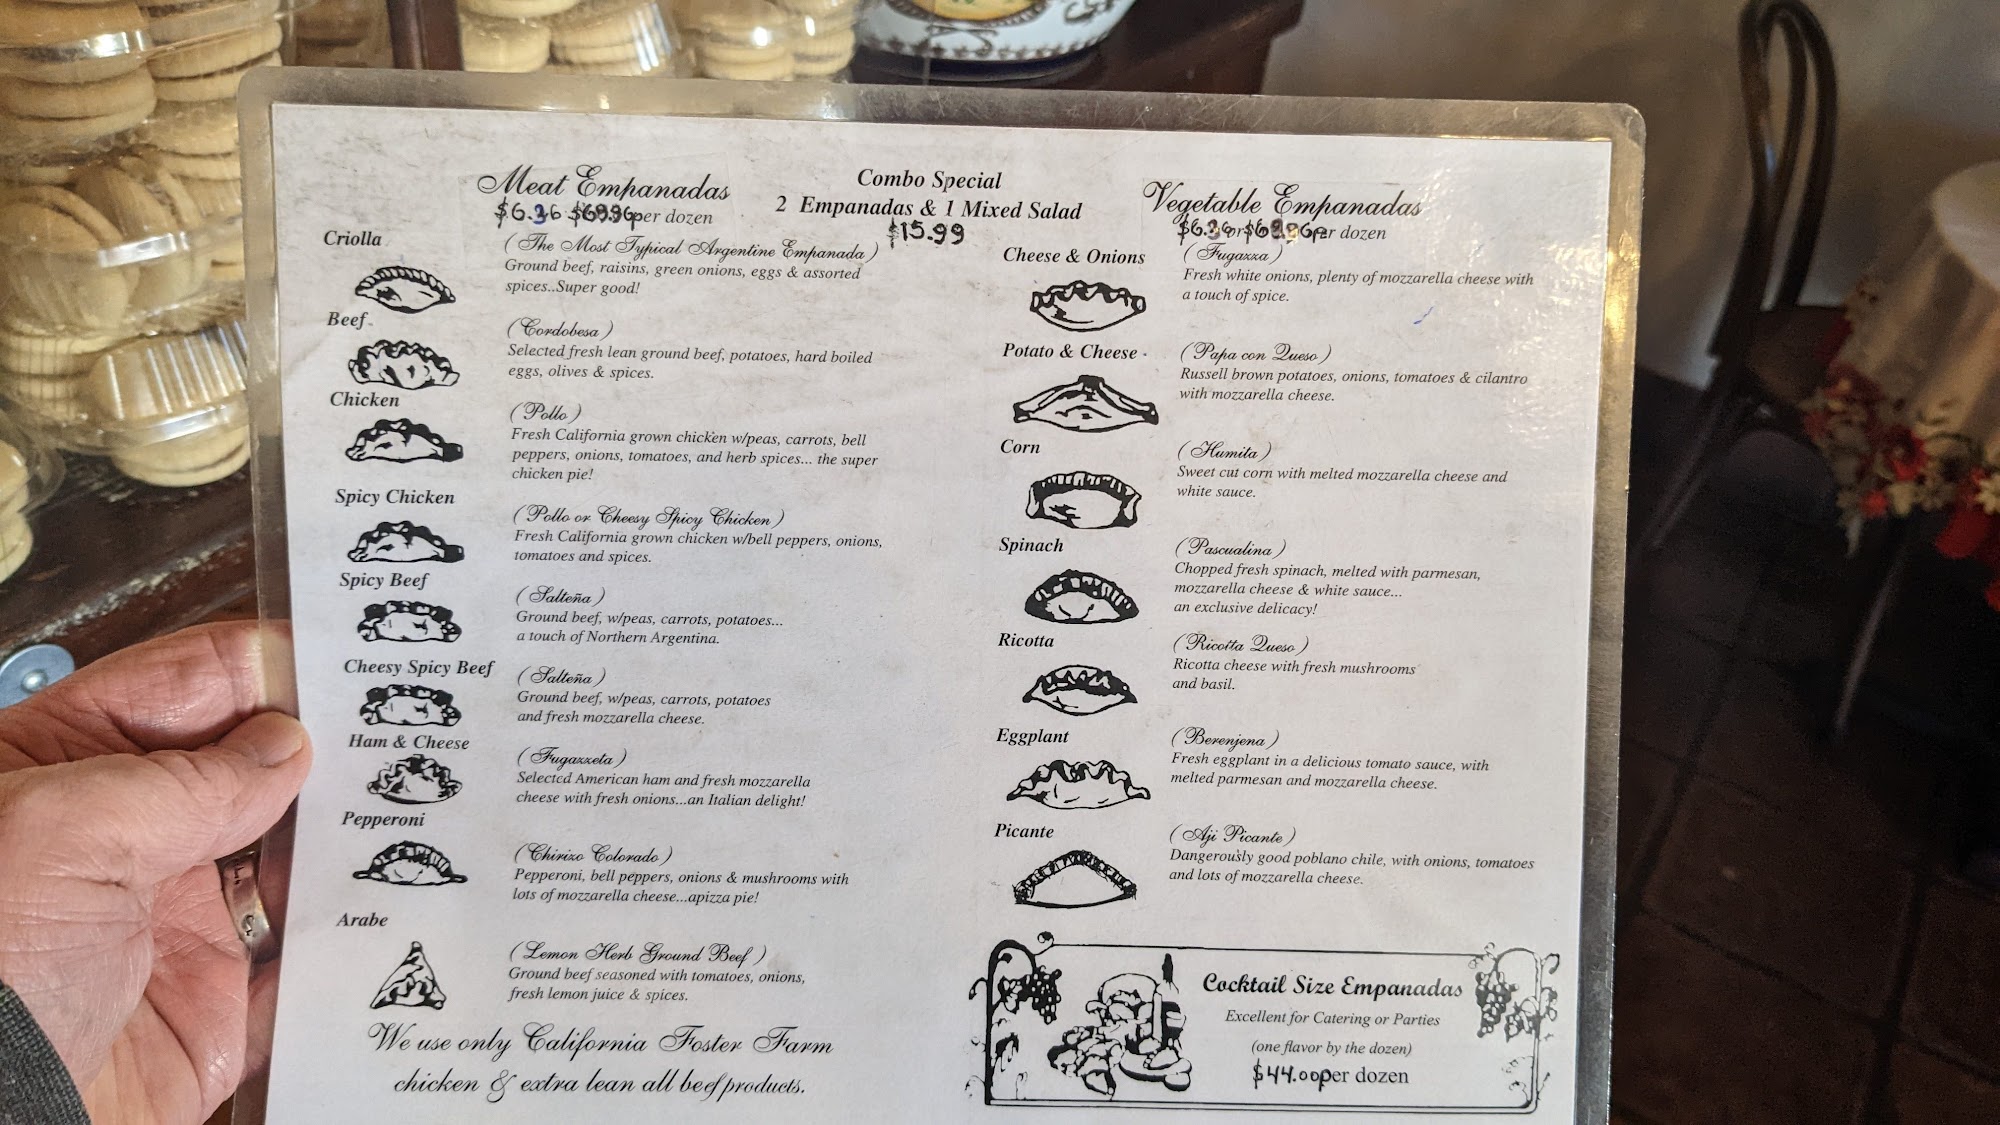 Meat Empanadas
$6.36 $69.96 per dozen
Criolla
(The Most Typical Argentine Empanada)
Ground beef, raisins, green onions, eggs & assorted
spices..Super good!
Beef
(Cordobesa)
Selected fresh lean ground beef, potatoes, hard boiled
eggs, olives & spices.
Chicken
(Pollo)
Fresh California grown chicken w/peas, carrots, bell
peppers, onions, tomatoes, and herb spices... the super
chicken pie!
Spicy Chicken
(Pollo or Cheesy Spicy Chicken)
Fresh California grown chicken w/bell peppers, onions,
tomatoes and spices.
Spicy Beef
(Salteña)
Ground beef, w/peas, carrots, potatoes...
a touch of Northern Argentina.
Cheesy Spicy Beef
(Salteña)
Ground beef, w/peas, carrots, potatoes
and fresh mozzarella cheese.
Ham & Cheese
(Fugazzeta)
Selected American ham and fresh mozzarella
cheese with fresh onions...an Italian delight!
Pepperoni
(Chirizo Colorado)
Pepperoni, bell peppers, onions & mushrooms with
lots of mozzarella cheese...apizza pie!
Arabe
(Lemon Herb Ground Beef)
Ground beef seasoned with tomatoes, onions,
fresh lemon juice & spices.
We use only California Foster Farm
chicken & extra lean all beef products.
Combo Special
2 Empanadas & 1 Mixed Salad
$15.99
Vegetable Empanadas
$6.36 or $69.96 per dozen
Cheese & Onions
(Fugazza)
Fresh white onions, plenty of mozzarella cheese with
a touch of spice.
Potato & Cheese
(Papa con Queso)
Russell brown potatoes, onions, tomatoes & cilantro
with mozzarella cheese.
Corn
(Humita)
Sweet cut corn with melted mozzarella cheese and
white sauce.
Spinach
(Pascualina)
Chopped fresh spinach, melted with parmesan,
mozzarella cheese & white sauce...
an exclusive delicacy!
Ricotta
(Ricotta Queso)
Ricotta cheese with fresh mushrooms
and basil.
Eggplant
(Berenjena)
Fresh eggplant in a delicious tomato sauce, with
melted parmesan and mozzarella cheese.
Picante
(Aji Picante)
Dangerously good poblano chile, with onions, tomatoes
and lots of mozzarella cheese.
Cocktail Size Empanadas
Excellent for Catering or Parties
(one flavor by the dozen)
$44.00 per dozen